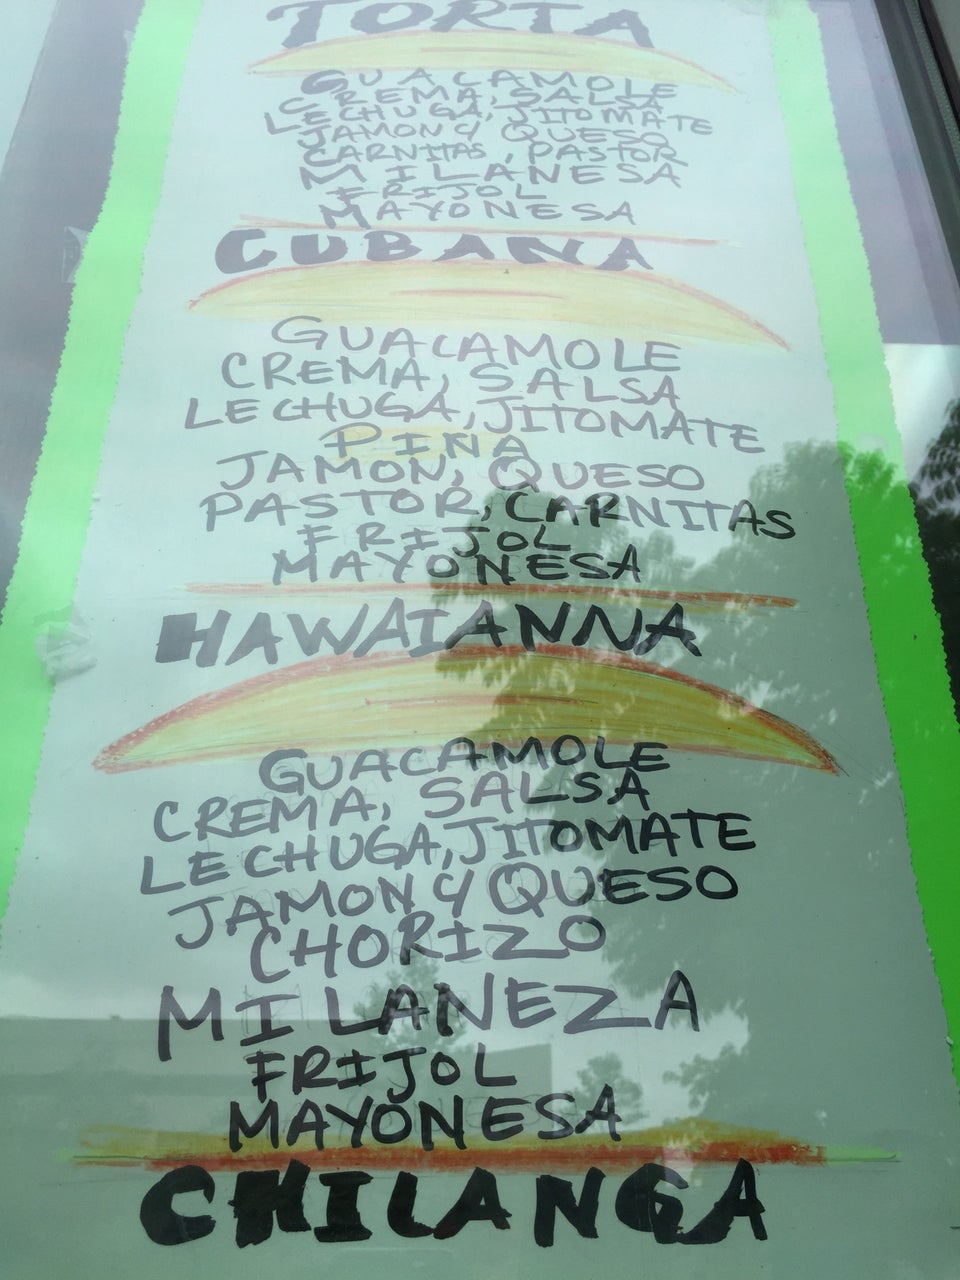 TORTA
GUACAMOLE
CREMA, SALSA
LECHUGA, JITOMATE
JAMON Y QUESO
CARNITAS, PASTOR
MILANESA
FRIJOL
MAYONESA
CUBANA
GUACAMOLE
CREMA, SALSA
LECHUGA, JITOMATE
PIÑA
JAMON, QUESO
PASTOR, CARNITAS
FRIJOL
MAYONESA
HAWAIANNA
GUACAMOLE
CREMA, SALSA
LECHUGA, JITOMATE
JAMON Y QUESO
CHORIZO
MILANEZA
FRIJOL
MAYONESA
CHILANGA